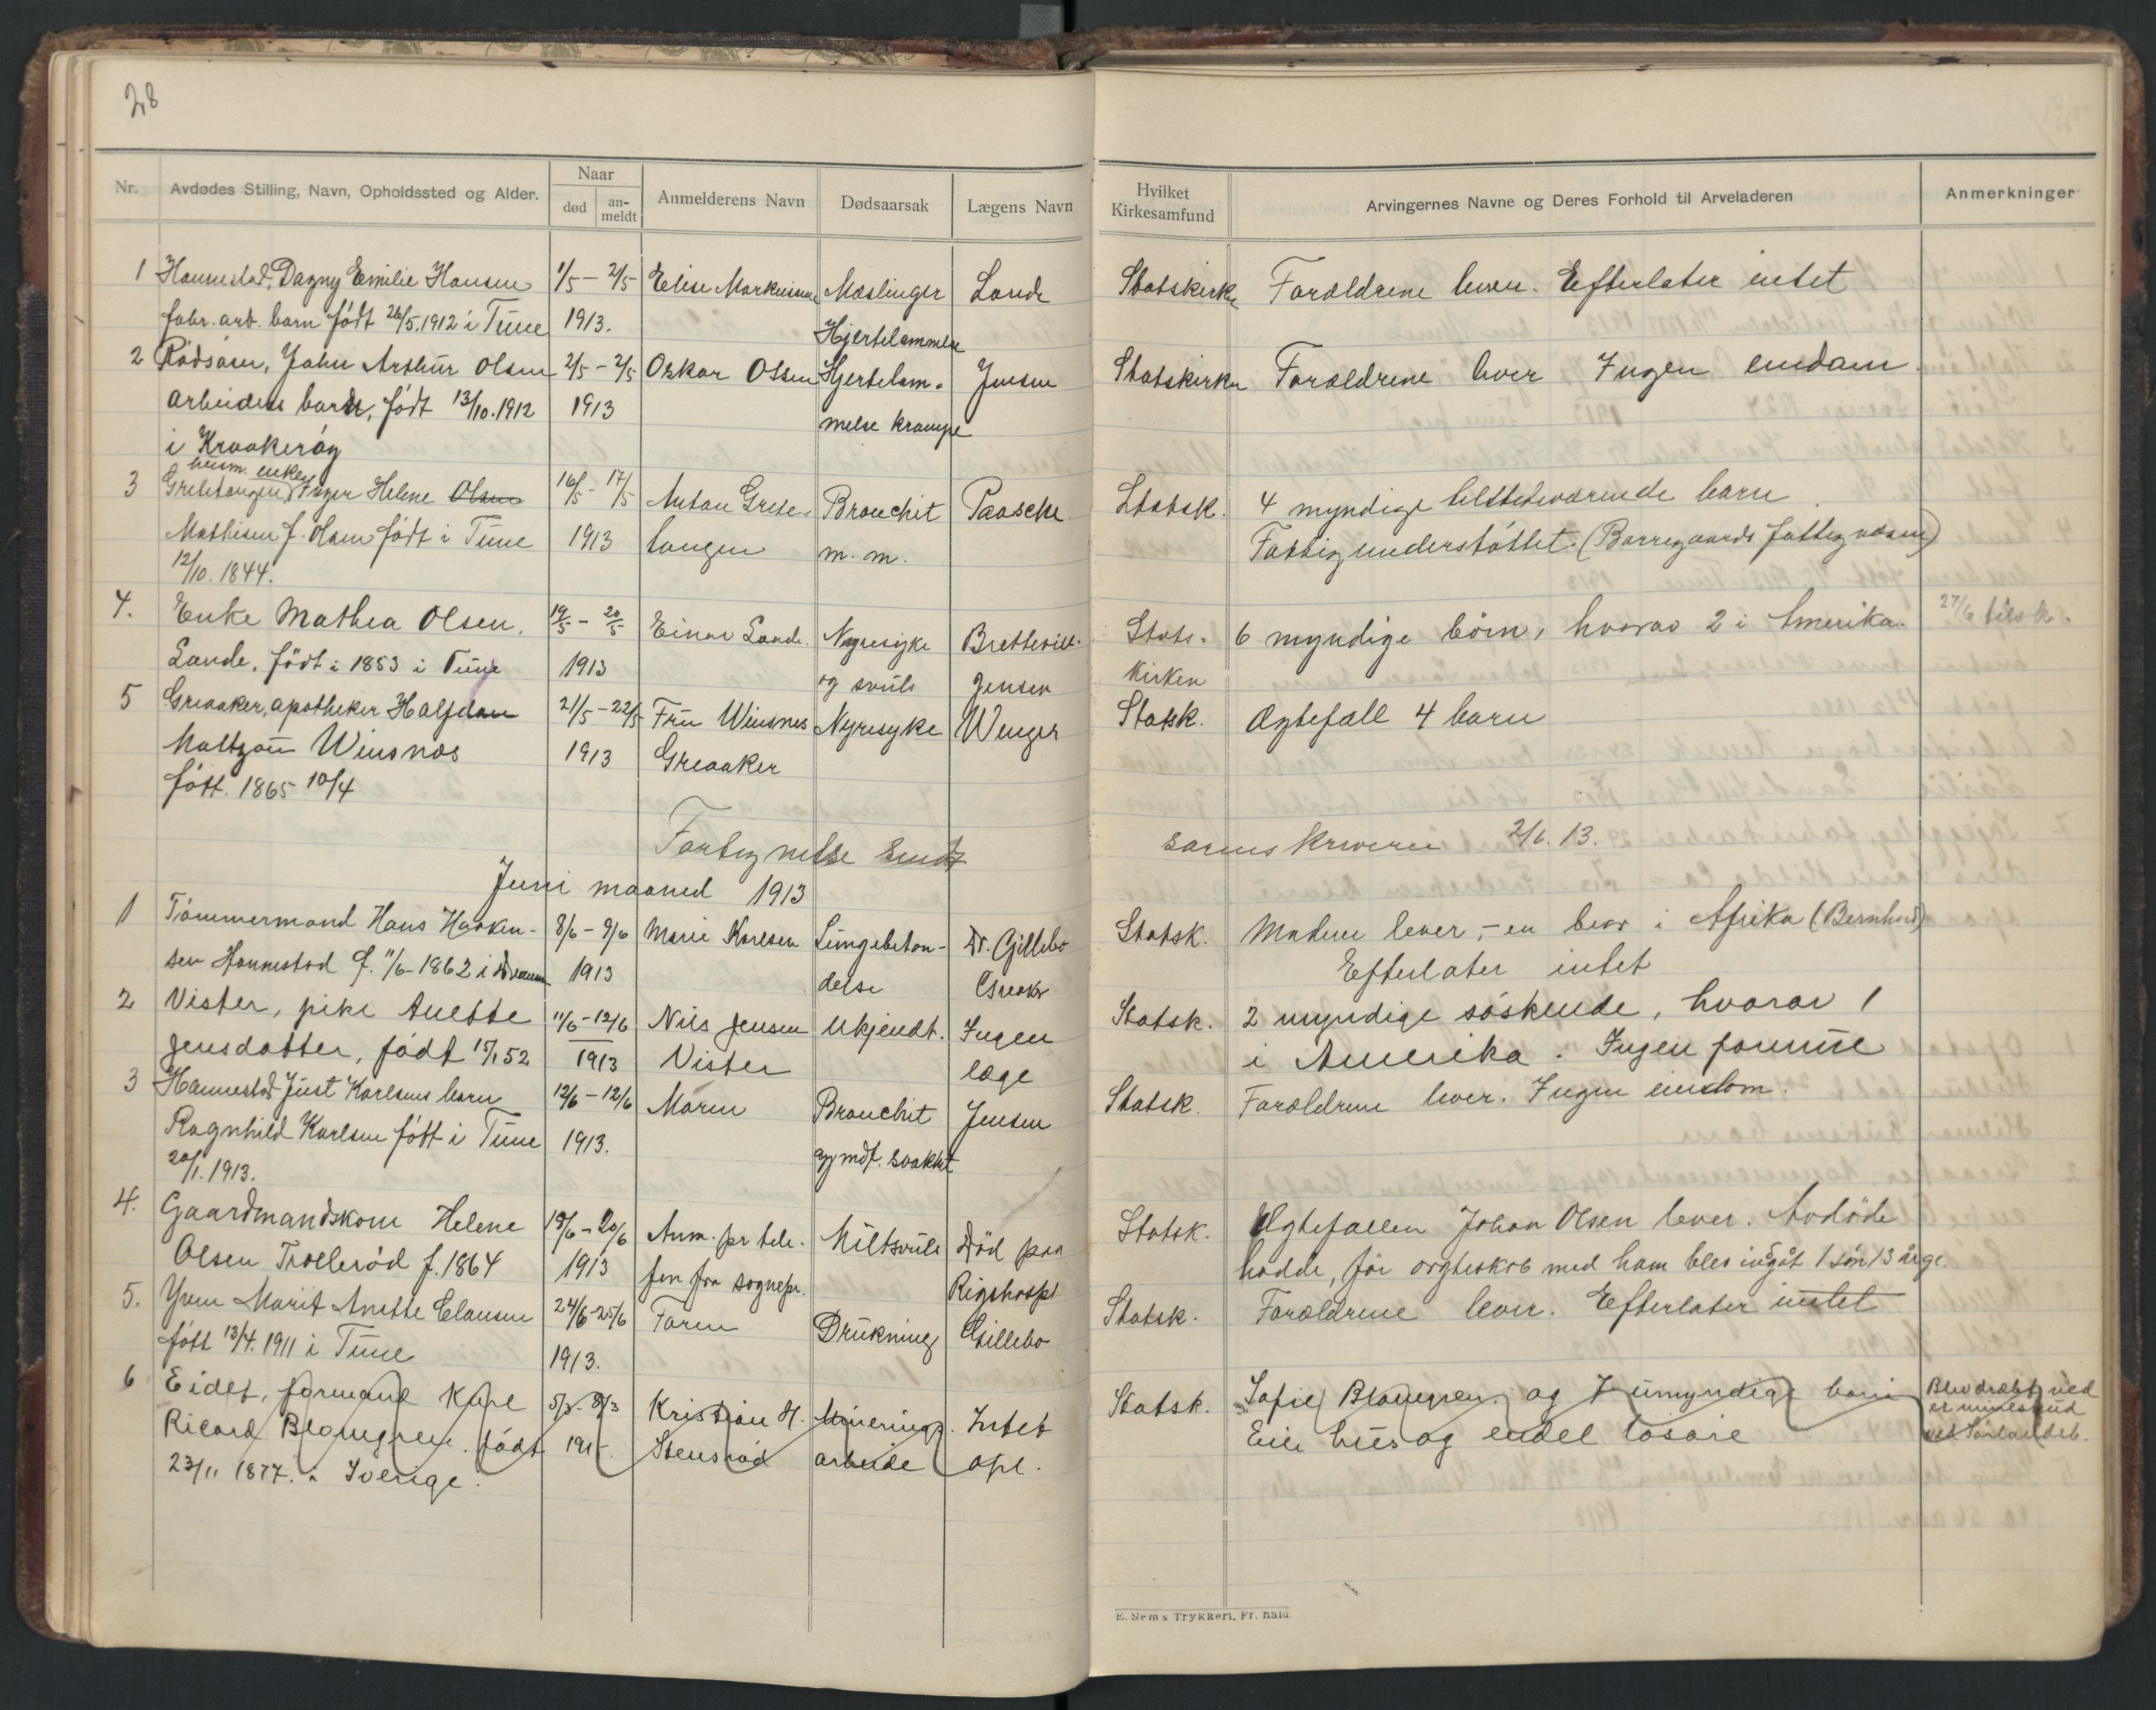 28
Nr.
Avdødes Stilling, Navn, Opholdssted og Alder.
Naar
død
an-
meldt
Anmelderens Navn
Dødsaarsak
Lægens Navn
Hvilket
Kirkesamfund
Arvingernes Navne og Deres Forhold til Arveladeren
Anmerkninger
1 Hannestad, Dagny Emilie Hansen 1/5 – 2/5 Elise Mæslinger Lande Statskirke Forældrene lever. Efterlater intet
fabr. arb. barn født 26/5.1912 i Tune 1913. Hjertelammelse
2 Rødsåen, John Arthur Olsen 2/5 – 2/5 Oskar Olsen Hjertelam- Jensen Statskirken Forældrene lever Ingen eiendom
arbeiders barn, født 13/10.1912 1913 melse krampe
i Kraakerøy
husm. enke
3 Gretetangen, Inger Helene Olsen 16/5 – 17/5 Anton Grete- Bronchit Paasche Statsk. 4 myndige tilstedeværende barn
Mathisen f. Olsen født i Tune 1913 tangen m. m. Fattigunderstøttet. (Borregaards fattigvæsen)
12/10. 1844.
4. Enke Mathea Olsen. 19/5 – 20/5 Einar Lande. Nyresyke Stats- 6 myndige börn, hvorav 2 i Amerika. 27/6 tilsk.
Lande, födt i 1853 i Tune 1913 og svulst Jensen kirken
5 Greaaker, apotheker Halfdan 21/5 – 22/5 Fru Winsnes Nyresyke Wenger Statsk. Ægtefall 4 barn
Maltzau Winsnes 1913 Greaaker
født. 1865 10/4
Fortegnelse sendt sorenskriveren 2/6. 13.
Juni maaned 1913
1 Tömmermand Hans Haaken- 8/6 – 9/6 Marie Karlsen Lungebetæn- Dr. Gillebo Statsk. Moderen lever, – en bror i Afrika (Bernhard)
sen Hannestad f. 11/6-1862 i 1913 delse Greaker Efterlater intet
2 Vister, pike Anette 11/6 – 12/6 Nils Jensen Ukjendt. Ingen Statsk. 2 myndige søskende, hvorav 1
Jensdatter, født 15/1 52 1913 Vister læge i Amerika. Ingen formue
3 Hannestad Just Karlsens barn 12/6 – 12/6 Moren Bronchit Jensen Statsk. Forældrene lever. Ingen eiendom.
Ragnhild Karlsen født i Tune 1913. og mdf. svakhet
20/1. 1913.
4. Gaardmandskone Helene 19/6 – 20/6 Anm. pr tele- Miltsvulst Död paa Statsk. Ægtefællen Johan Olsen lever. Avdöde
Olsen Trollerød f. 1864 1913 fon fra sognepr. Rigshospt hadde, för ægteskab med ham blev ingåt 1 sön 13 årg.
5. Marit Anette Clausen 24/6-25/6 Faren Drukning Gillebo Statsk. Forældrene lever. Efterlater intet
født 13/4. 1911 i Tune 1913.
6 Eidet, formand Karl 5/3 – 8/3 Kristian H. Minerings- Intet Statsk. Sofie Blomgren og 7 umyndige barn Blev dræbt ved
Ricard Blomgren. født 191 . Stensrød arbeide opl. Eier hus og endel løsøre et mineskud
23/11 1877. i Sverige. ved Sørlandsb.
E. Sems Trykkeri, Fr.hald